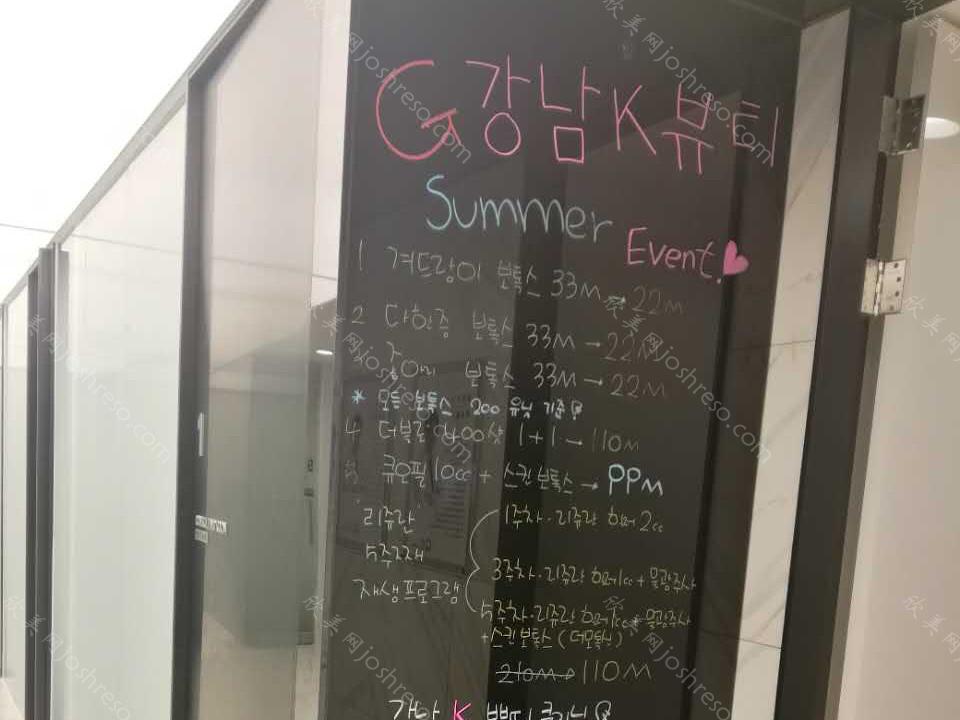 G 강남 K 뷰티
Summer
Event
1 겨드랑이 보톡스 33M → 22M
2 다한증 보톡스 33M → 22M
보톡스 33M → 22M
* 모든 보톡스 200 유닛 기준
4 더블로 400샷 1+1 → 110M
큐오필 10cc + 스킨보톡스 → PPM
리쥬란
5주
재생프로그램
1주차. 리쥬란 2cc
3주차. 리쥬란 1cc + 물광주사
5주차. 리쥬란 1cc * 물광주사
+ 스킨보톡스 (더모톡신)
210M → 110M
강남 K 뷰티클리닉
1
欣美网joshreso.com